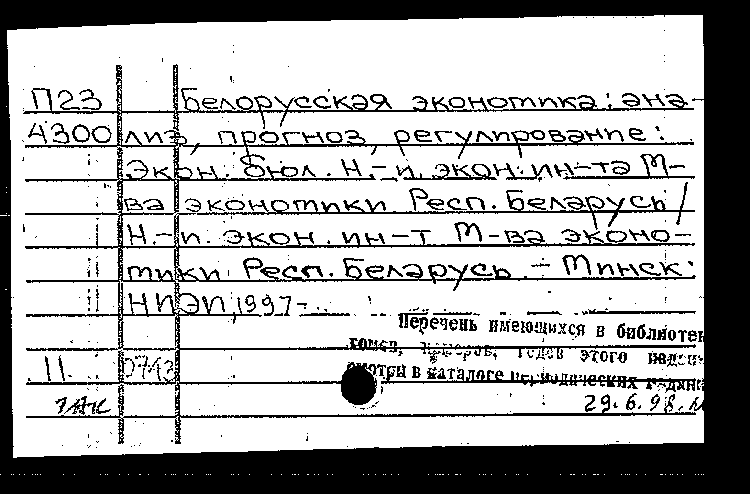 П23 Белорусская экономика: ана-
4300 лиз, прогноз, регулирование:
Экон. бюл. Н.-и. экон. ин-та М-
ва экономики Респ. Беларусь /
Н.-и. экон. ин-т М-ва эконо-
мики Респ. Беларусь. - Минск:
НИЭИ, 1997-
Перечень имеющихся в библиотек
томов, номеров, годов этого издан
смотри в каталоге периодических издан
11 0743
29.6.98.